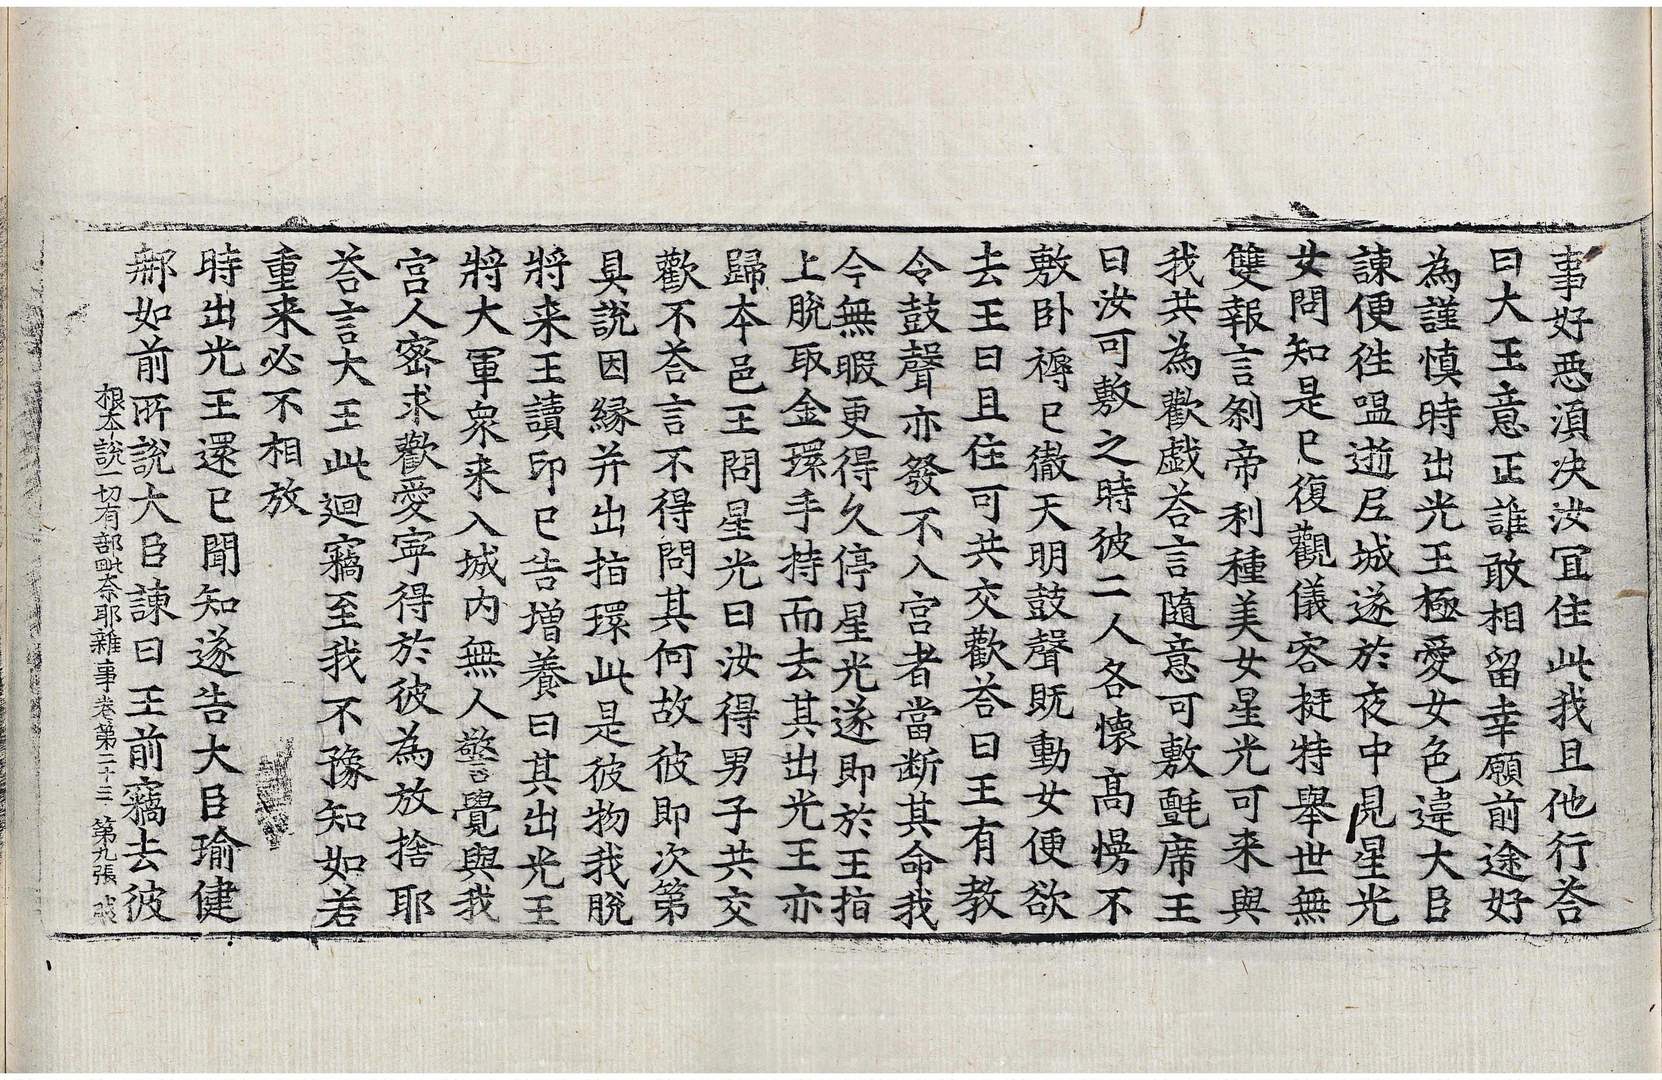 事好惡湏决汝冝住此我且他行荅
曰大王意正誰敢相留幸願前途好
為謹慎時出光王極愛女色違大臣
諫便徃嗢逝𡰱城遂於夜中見星光
女問知是巳復觀儀容挺特舉世無
雙報言刹帝利種美女星光可来與
我共為歡戲荅言隨意可敷氍席王
曰汝可敷之時彼二人各懷高慢不
敷卧褥巳徹天明鼓聲既動女便欲
去王曰且住可共交歡荅曰王有教
令鼓聲亦發不入宫者當断其命我
今無暇更得久停星光遂即於王指
上脫取金環手持而去其出光王亦
歸夲邑王問星光曰汝得男子共交
歡不荅言不得問其何故彼即次第
具說因縁并出指環此是彼物我脫
將来王讀印巳告增養曰其出光王
將大軍衆来入城内無人警覺與我
宫人密求歡愛寧得於彼為放捨耶
荅言大王此迴竊至我不豫知如若
重来必不相放
時出光王還巳聞知遂告大臣瑜健
那如前所說大臣諫曰王前竊去彼
根夲說一切有部毗奈耶雜事卷第二十三 第九張